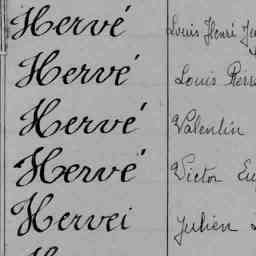 Hervé Louis Henri
Hervé Louis
Hervé Valentin
Hervé Victor
Hervei Julien